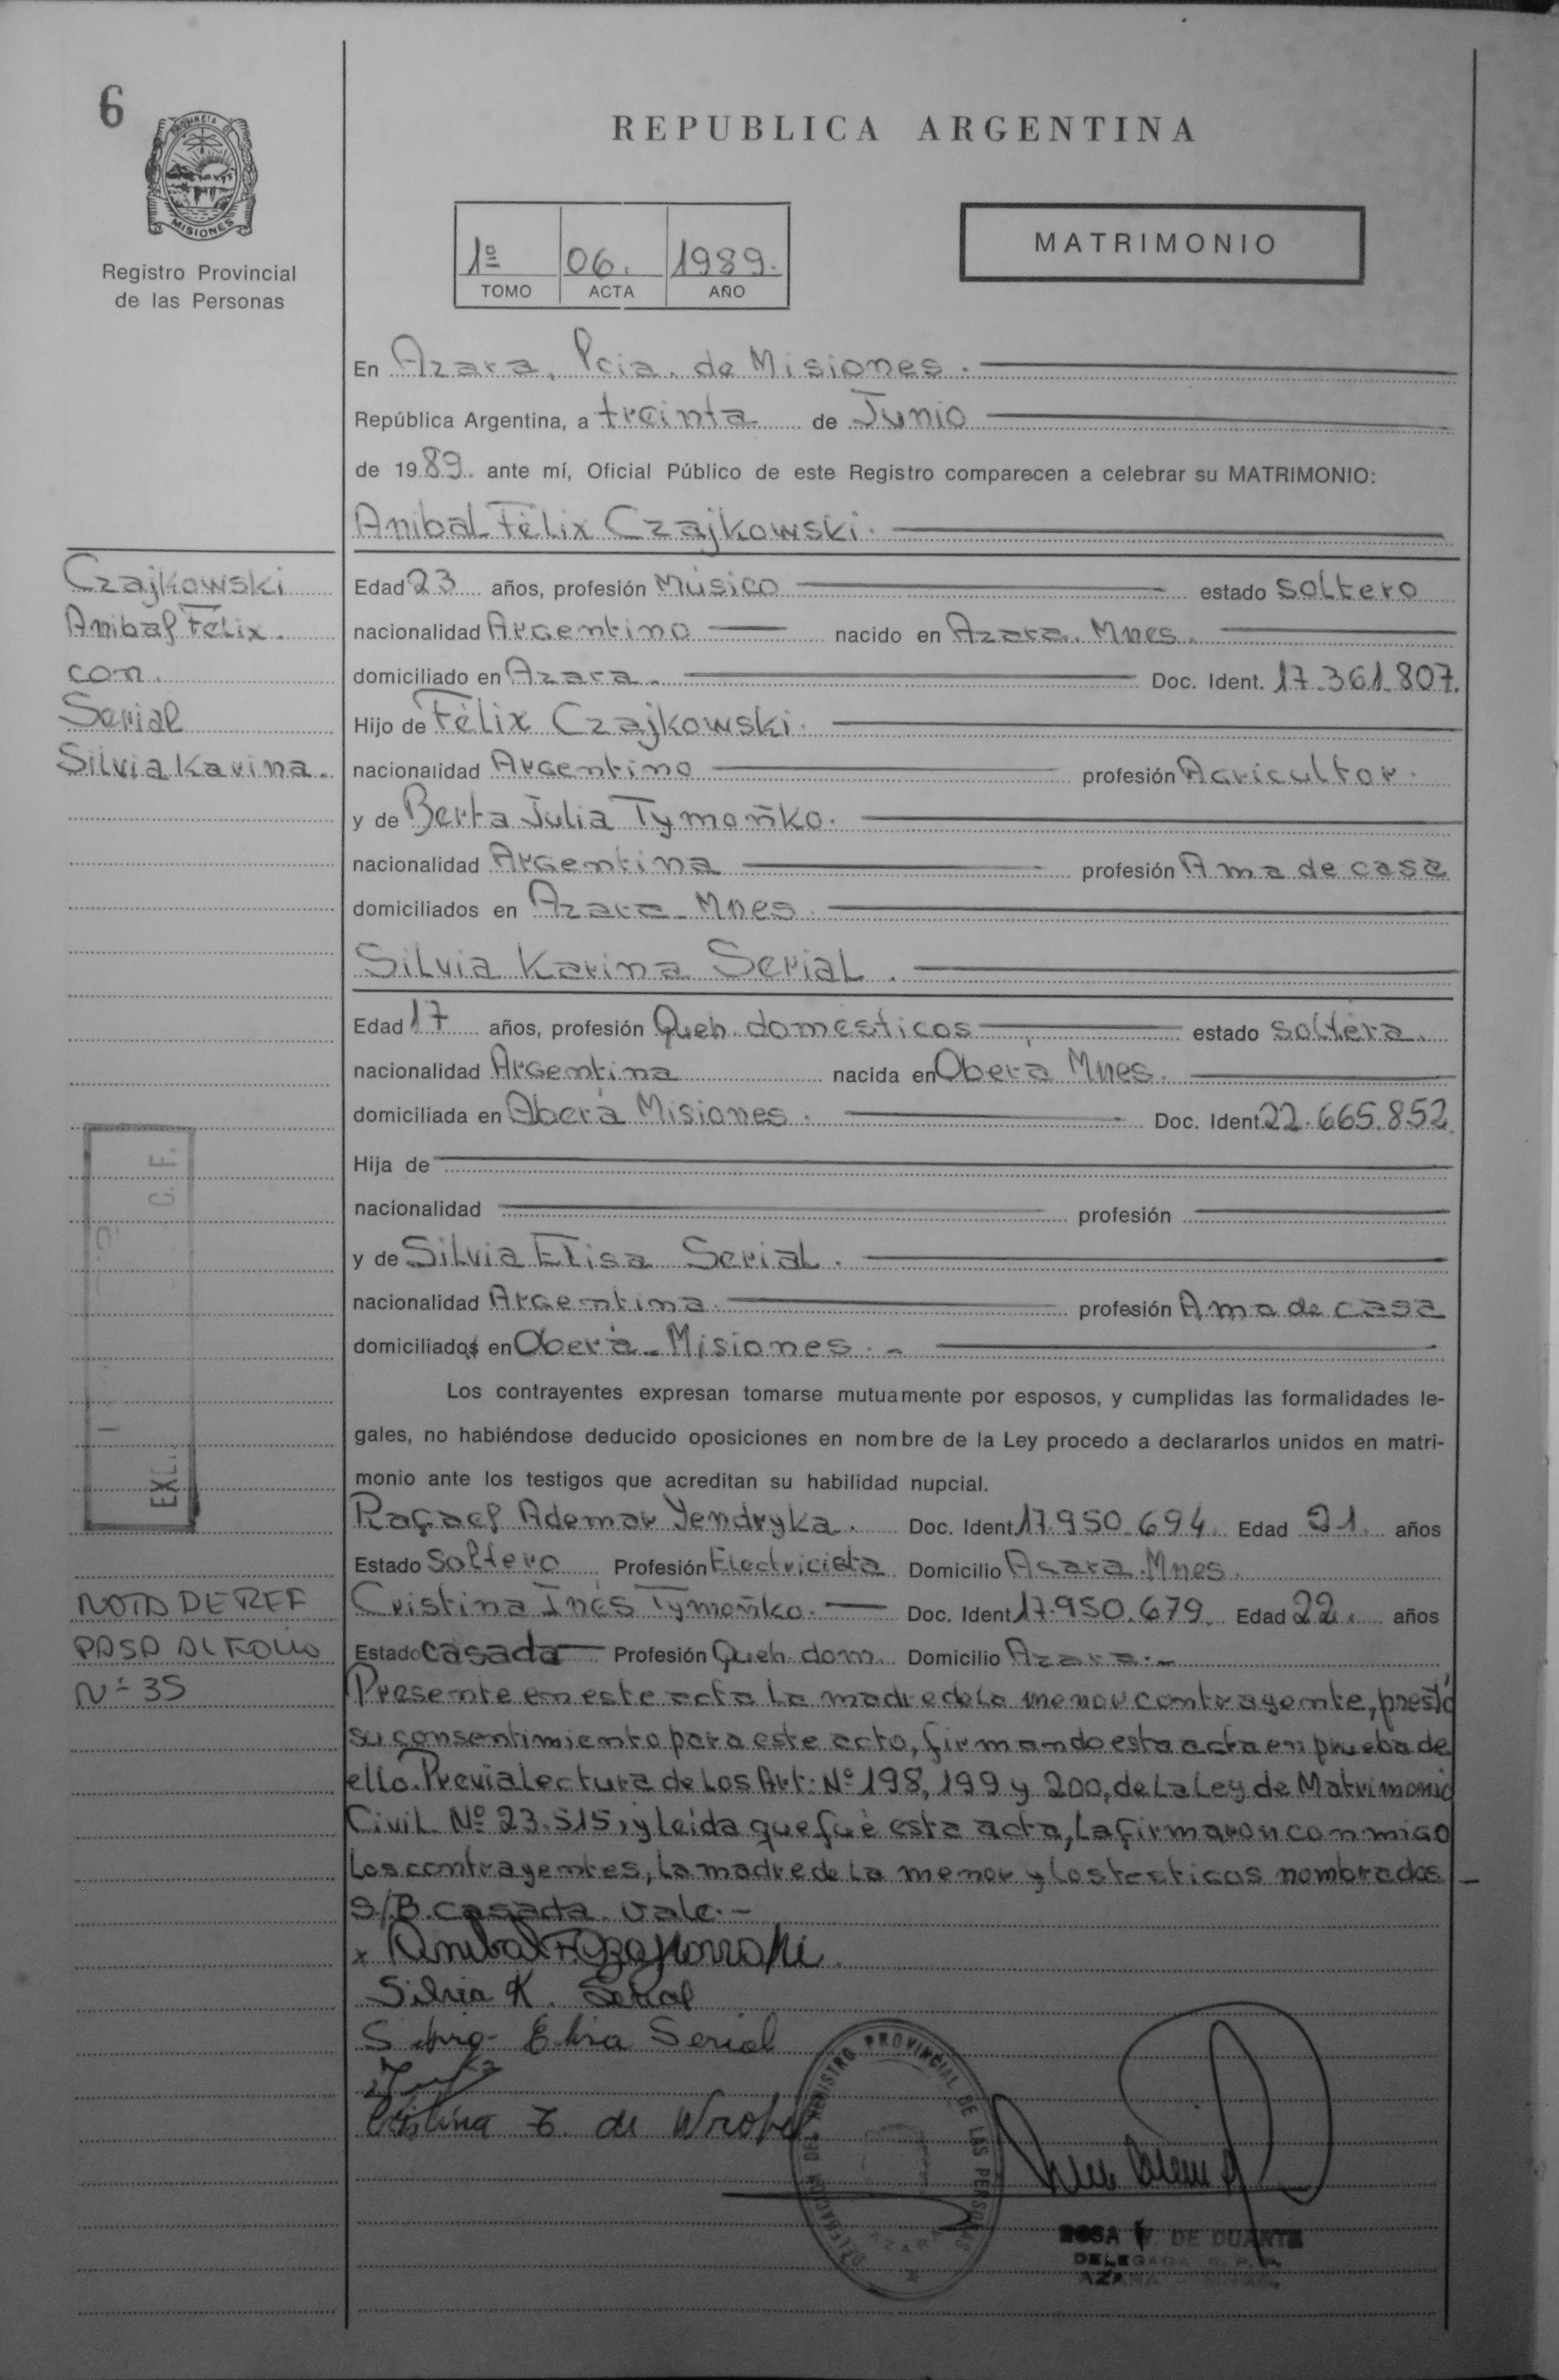 6
PROVINCIA DE
MISIONES
Registro Provincial
de las Personas
REPUBLICA ARGENTINA
1º 06. 1989.
TOMO ACTA AÑO
MATRIMONIO
En Azara, Pcia. de Misiones.
República Argentina, a treinta de Junio
de 1989. ante mí, Oficial Público de este Registro comparecen a celebrar su MATRIMONIO:
Anibal Félix Czajkowski.
Czajkowski
Anibal Félix.
con.
Serial
Silvia Karina.
Edad 23 años, profesión Músico estado soltero
nacionalidad Argentino nacido en Azara. Mnes.
domiciliado en Azara. Doc. Ident. 17.361.807.
Hijo de Félix Czajkowski.
nacionalidad Argentino profesión Agricultor.
y de Berta Julia Tymoñko.
nacionalidad Argentina profesión Ama de casa
domiciliados en Azara - Mnes.
Silvia Karina Serial.
Edad 17 años, profesión Queh. domésticos estado soltera.
nacionalidad Argentina nacida en Oberá Mnes.
domiciliada en Aberá Misiones. Doc. Ident. 22.665.852.
Hija de
nacionalidad profesión
y de Silvia Elisa Serial.
nacionalidad Argentina. profesión Ama de casa
domiciliados en Oberá - Misiones. -
Los contrayentes expresan tomarse mutuamente por esposos, y cumplidas las formalidades le-
gales, no habiéndose deducido oposiciones en nombre de la Ley procedo a declararlos unidos en matri-
monio ante los testigos que acreditan su habilidad nupcial.
Rafael Ademar Yendryka. Doc. Ident. 17.950.694. Edad 21. años
Estado Soltero Profesión Electricista Domicilio Asara. Mnes.
Cristina Inés Tymoñko. Doc. Ident. 17.950.679. Edad 22. años
Estado casada Profesión Queh. dom. Domicilio Azara. -
C.F.
EX
NOTA DE REF
PASA AL FOLIO
Nº 35
Presente en este acta la madre de la menor contrayente, prestó
su consentimiento para este acto, firmando esta acta en prueba de
ello. Previa lectura de los Art: Nº 198, 199 y 200, de la Ley de Matrimonio
Civil Nº 23.515, y leída que fué esta acta, la firmaron conmigo
los contrayentes, la madre de la menor y los testigos nombrados -
S/B. casada. vale. -
x Anibal F. Czajkowski
Silvia K. Serial
Silvia Elisa Serial
Cristina T. de Wrobel
DELEGACION DEL REGISTRO PROVINCIAL DE LAS PERSONAS
AZARA
ROSA V. DE DUARTE
DELEGADA R. P. P.
AZARA - MNES.